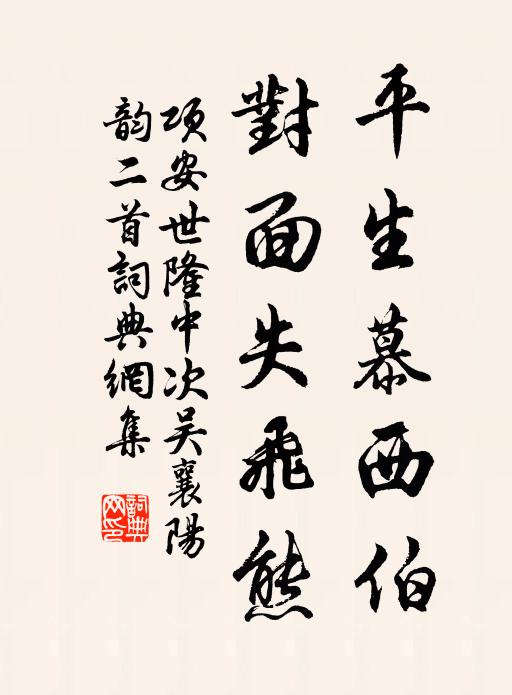 平生慕西伯
對面失飛熊
項安世隆中次吴襄陽
韵二首詞典網集
詞典网印